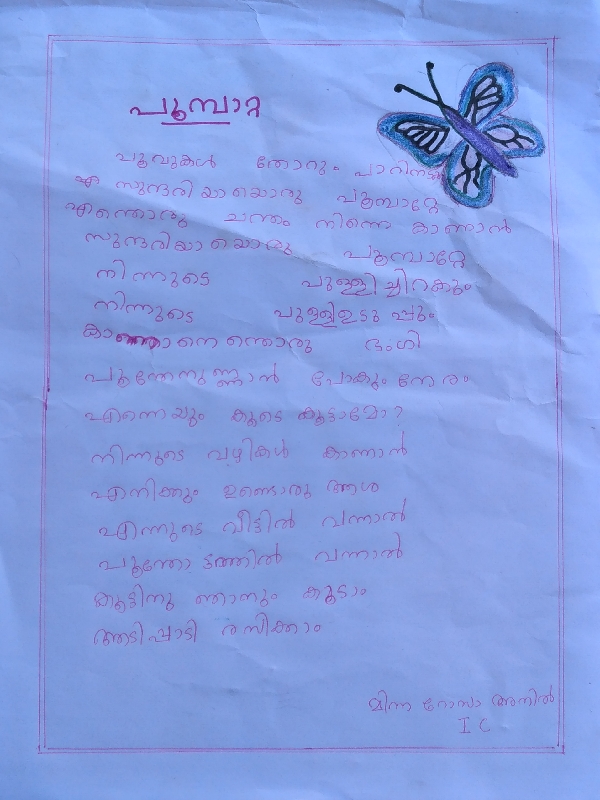 പൂമ്പാറ്റ
പൂവുകൾ തോറും പാറിനടക്കും
ഏ സുന്ദരിയായൊരു പൂമ്പാറ്റേ
എന്തൊരു ചന്തം നിന്നെ കാണാൻ
സുന്ദരിയായൊരു പൂമ്പാറ്റേ
നിന്നുടെ പുള്ളിച്ചിറകും
നിന്നുടെ പുള്ളിഉടുപ്പും
കാണാനെന്തൊരു ഭംഗി
പൂന്തേനുണ്ണാൻ പോകും നേരം
എന്നെയും കൂടെ കൂട്ടാമോ?
നിന്നുടെ വഴികൾ കാണാൻ
എനിക്കും ഉണ്ടൊരു ആശ
എന്നുടെ വീട്ടിൽ വന്നാൽ
പൂന്തോട്ടത്തിൽ വന്നാൽ
കൂട്ടിനു ഞാനും കൂടാം
ആടിപ്പാടി രസിക്കാം
മിന്ന റോസാ അനിൽ
I C